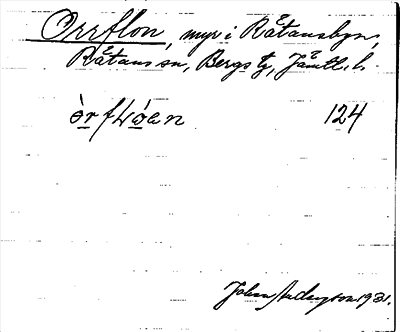 Orrflon, myr i Råtansbyn,
Råtans sn, Bergs tg, Jämtl. l.
òrfLóan 124
Johan 1931.